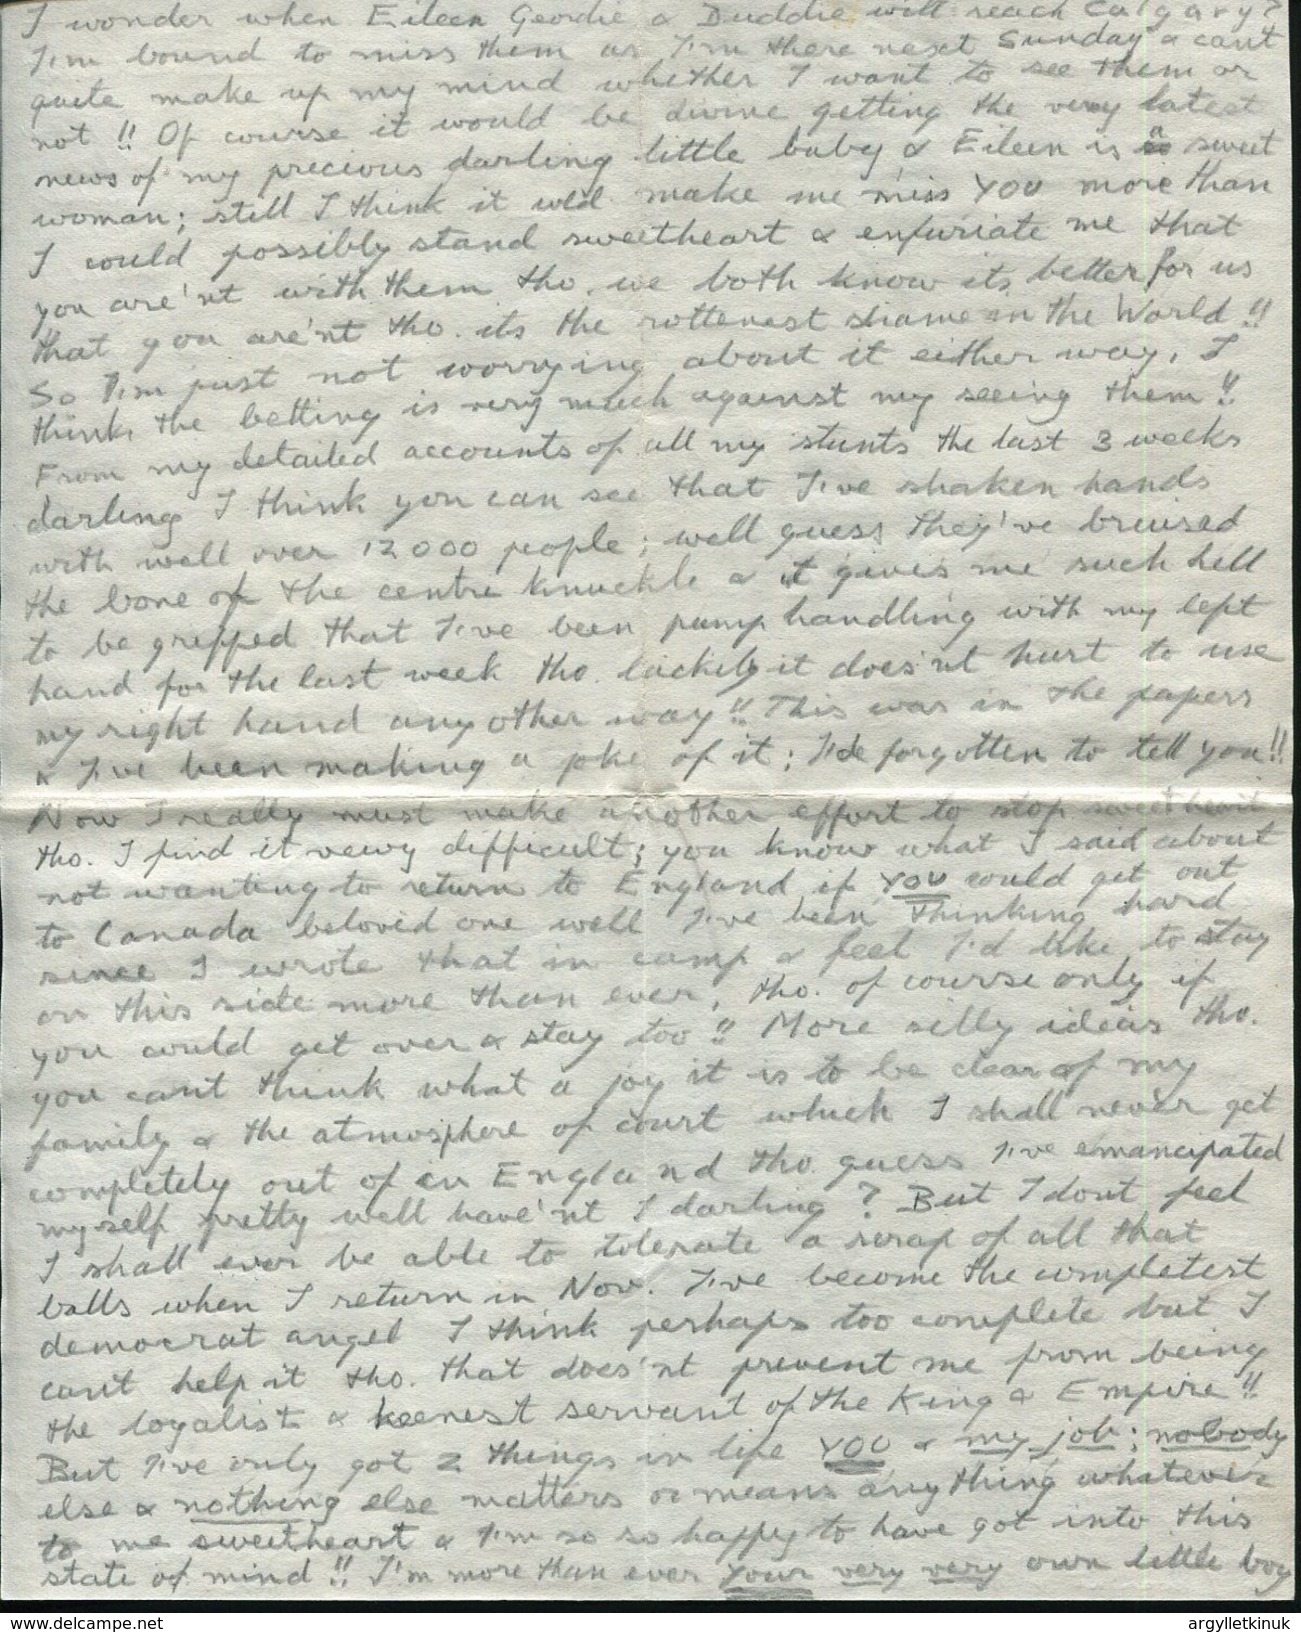 I wonder when Eileen Geordie & Duddie will reach Calgary?
I'm bound to miss them as I'm there next Sunday & can't
quite make up my mind whether I want to see them or
not!! Of course it would be divine getting the very latest
news of my precious darling little baby & Eileen is a sweet
woman; still I think it wld make me miss YOU more than
I could possibly stand sweetheart & enfuriate me that
you are'nt with them tho. we both know its better for us
that you are'nt tho. its the rottenest shame in the World!!
So I'm just not worrying about it either way, I
think the betting is very much against my seeing them!!
From my detailed accounts of all my stunts the last 3 weeks
darling I think you can see that I've shaken hands
with well over 12000 people; well guess they've bruised
the bone of the centre knuckle & it gives me such hell
to be gripped that I've been pump handling with my left
hand for the last week tho. luckily it does'nt hurt to use
my right hand any other way!! This was in the papers
& I've been making a joke of it; I'de forgotten to tell you!!
Now I really must make another effort to stop sweetheart
tho. I find it vewy difficult; you know what I said about
not wanting to return to England if YOU could get out
to Canada beloved one well I've been thinking hard
since I wrote that in camp & feel I'd like to stay
on this side more than ever, tho. of course only if
you could get over & stay too!! More silly ideas tho.
you cant think what a joy it is to be clear of my
family & the atmosphere of court which I shall never get
completely out of in England tho. guess I've emancipated
myself pretty well have'nt I darling? But I dont feel
I shall ever be able to tolerate a scrap of all that
balls when I return in Nov. I've become the completest
democrat angel I think perhaps too complete but I
can't help it tho. that does'nt prevent me from being
the loyalist & keenest servant of the King & Empire!!
But I've only got 2 things in life YOU & my job; nobody
else & nothing else matters or means anything whatever
to me sweetheart & I'm so so happy to have got into this
state of mind!! I'm more than ever your very very own little boy
www.delcampe.net
argylletkinuk